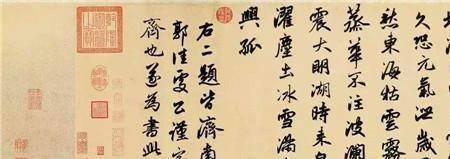 久恐元氣泄歲
愁東海枯雲霧
蒸華不注波瀾
震大明湖時來
濯塵土冰雪滿
興孤
右二題皆濟南
郭佳處公謹
齊也遂為書此